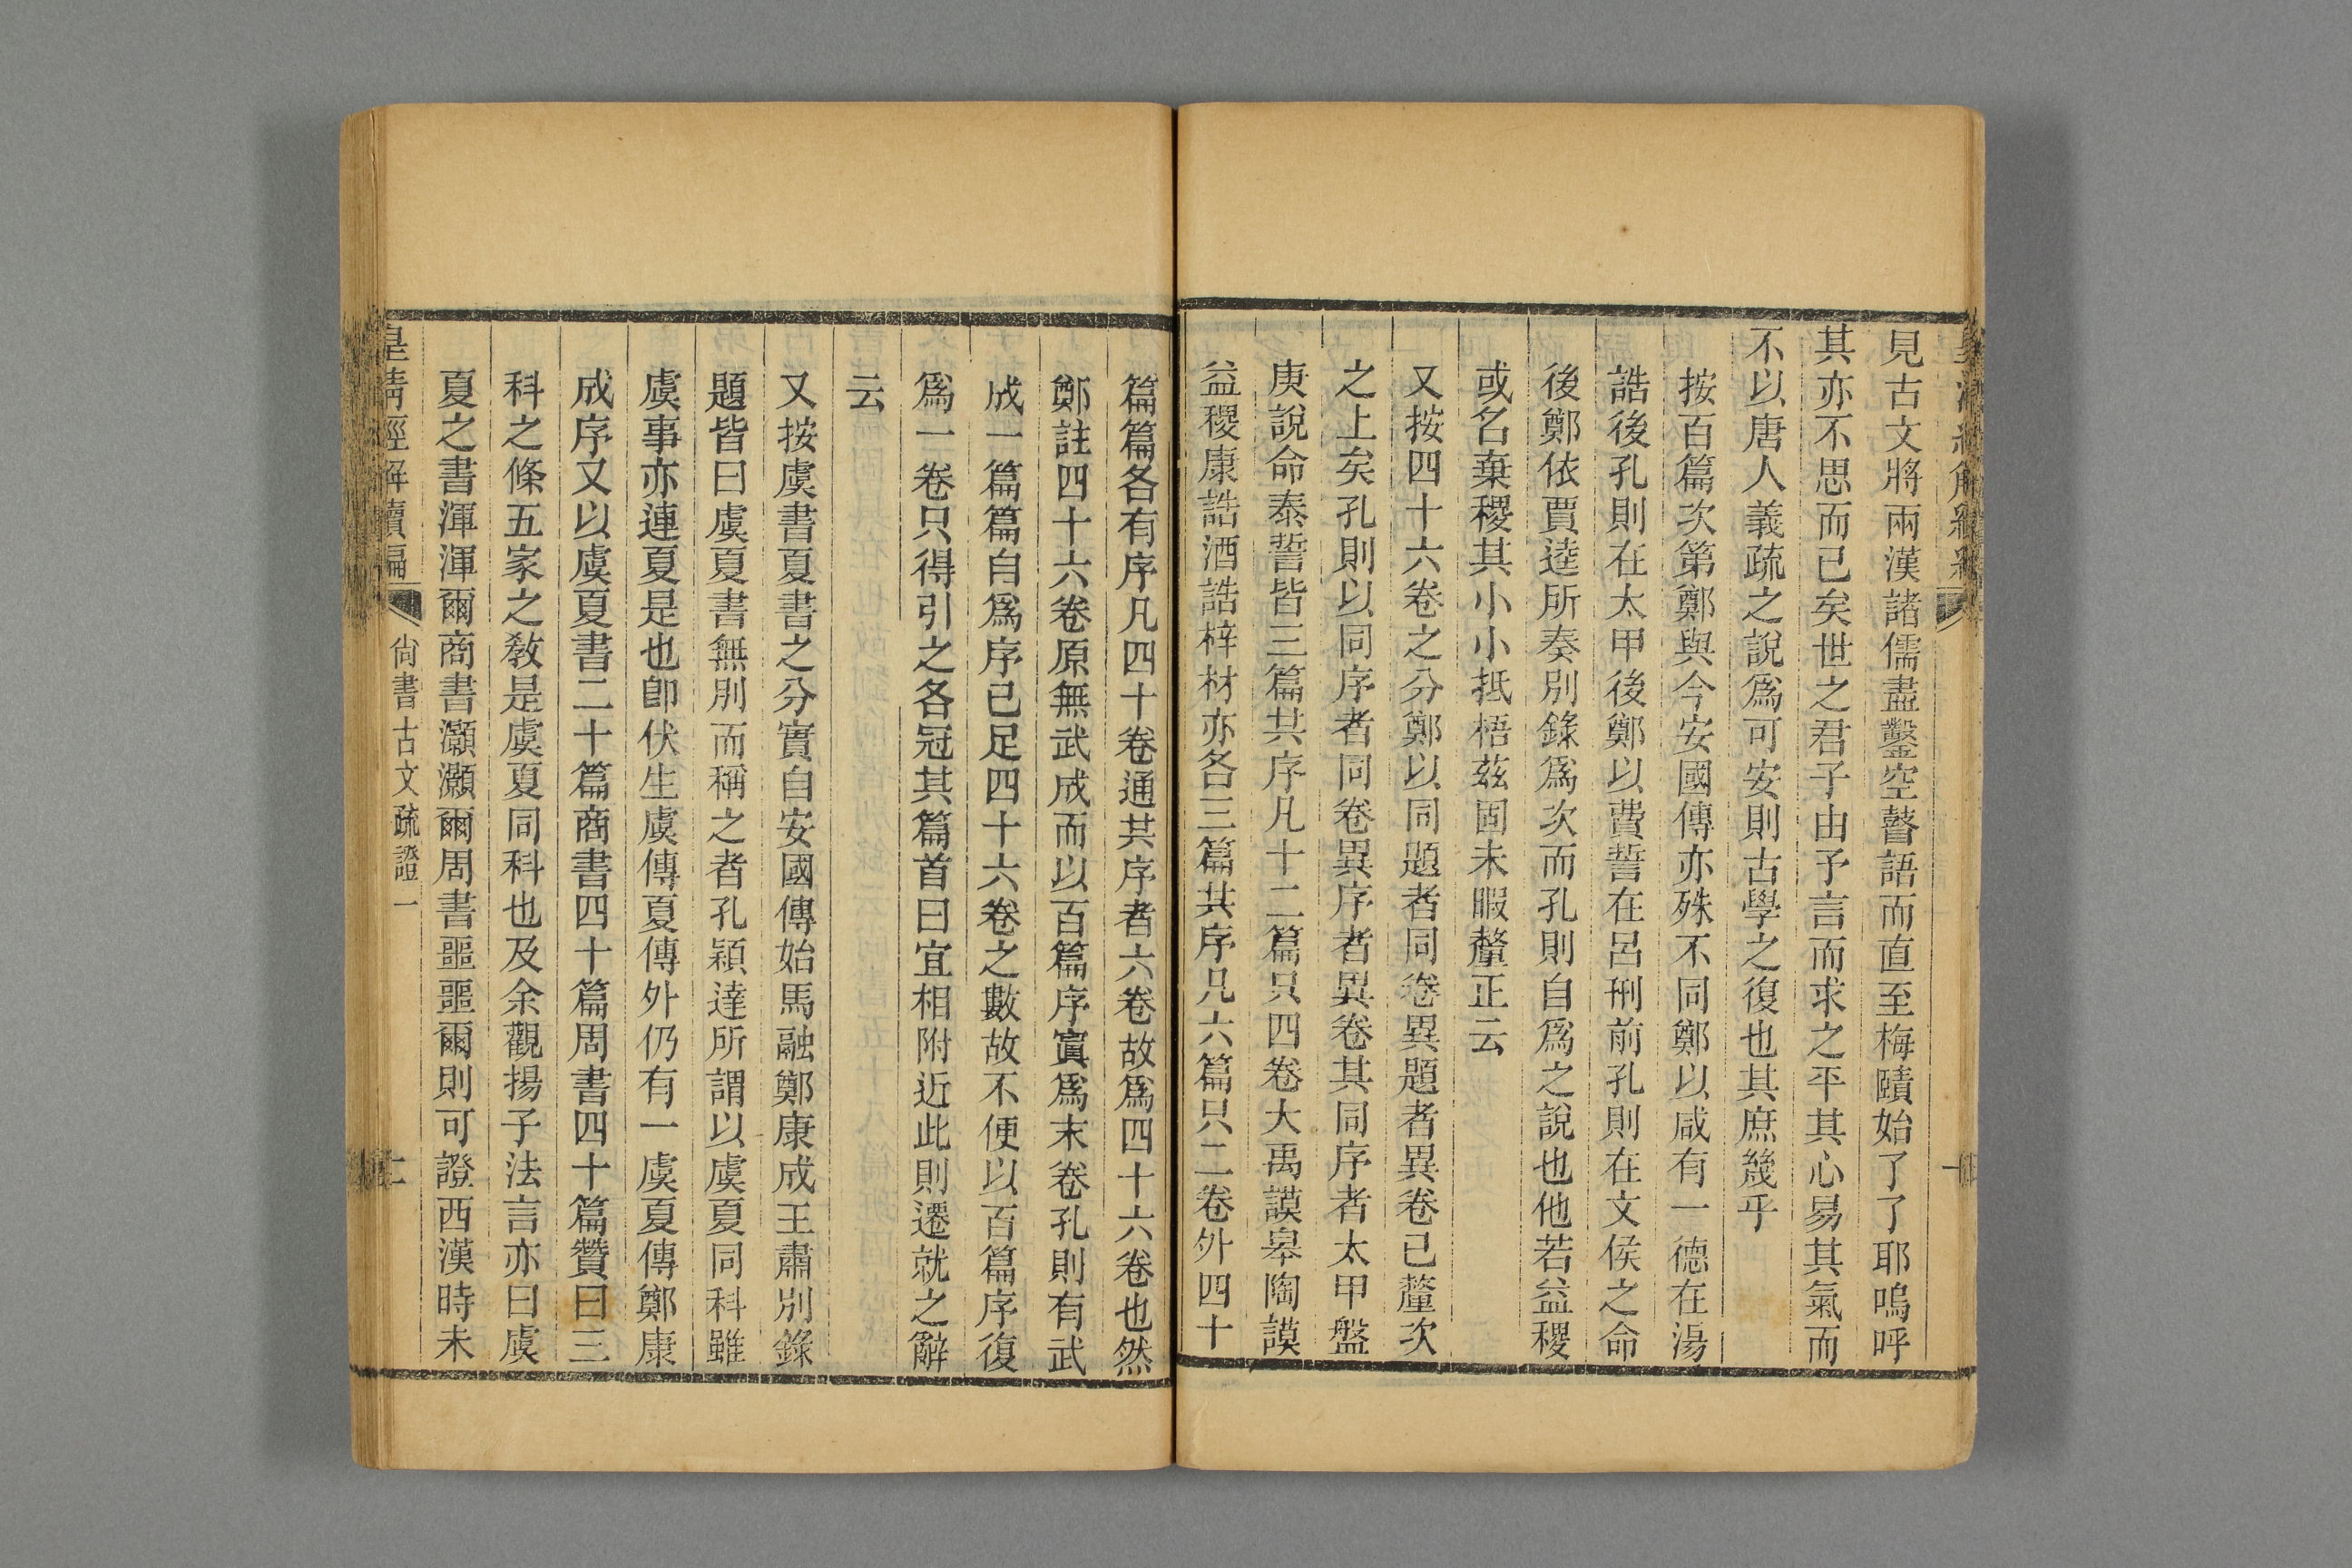 見古文將兩漢諸儒盡鑿空瞽語而直至梅賾始了了耶嗚呼
其亦不思而已矣世之君子由予言而求之平其心易其氣而
不以唐人義疏之說爲可安則古學之復也其庶幾乎
按百篇次第鄭與今安國傳亦殊不同鄭以咸有一德在湯
誥後孔則在太甲後鄭以費誓在呂刑前孔則在文侯之命
後鄭依賈逵所奏別錄爲次而孔則自爲之說也他若益稷
或名棄稷其小小抵梧茲固未暇釐正云
又按四十六卷之分鄭以同題者同卷異題者異卷已釐次
之上矣孔則以同序者同卷異序者異卷其同序者太甲盤
庚說命泰誓皆三篇共序凡十二篇只四卷大禹謨皋陶謨
益稷康誥酒誥梓材亦各三篇共序凡六篇只二卷外四十
篇篇各有序凡四十卷通共序者六卷故爲四十六卷也然
鄭註四十六卷原無武成而以百篇序寘爲末卷孔則有武
成一篇篇自爲序已足四十六卷之數故不便以百篇序復
爲一卷只得引之各冠其篇首曰宜相附近此則遷就之辭
云
又按虞書夏書之分實自安國傳始馬融鄭康成王肅別錄
題皆曰虞夏書無別而稱之者孔穎達所謂以虞夏同科雖
虞事亦連夏是也卽伏生虞傳夏傳外仍有一虞夏傳鄭康
成序又以虞夏書二十篇商書四十篇周書四十篇贊曰三
科之條五家之教是虞夏同科也及余觀揚子法言亦曰虞
夏之書渾渾爾商書灝灝爾周書噩噩爾則可證西漢時未
皇清經解續編
尙書古文疏證一